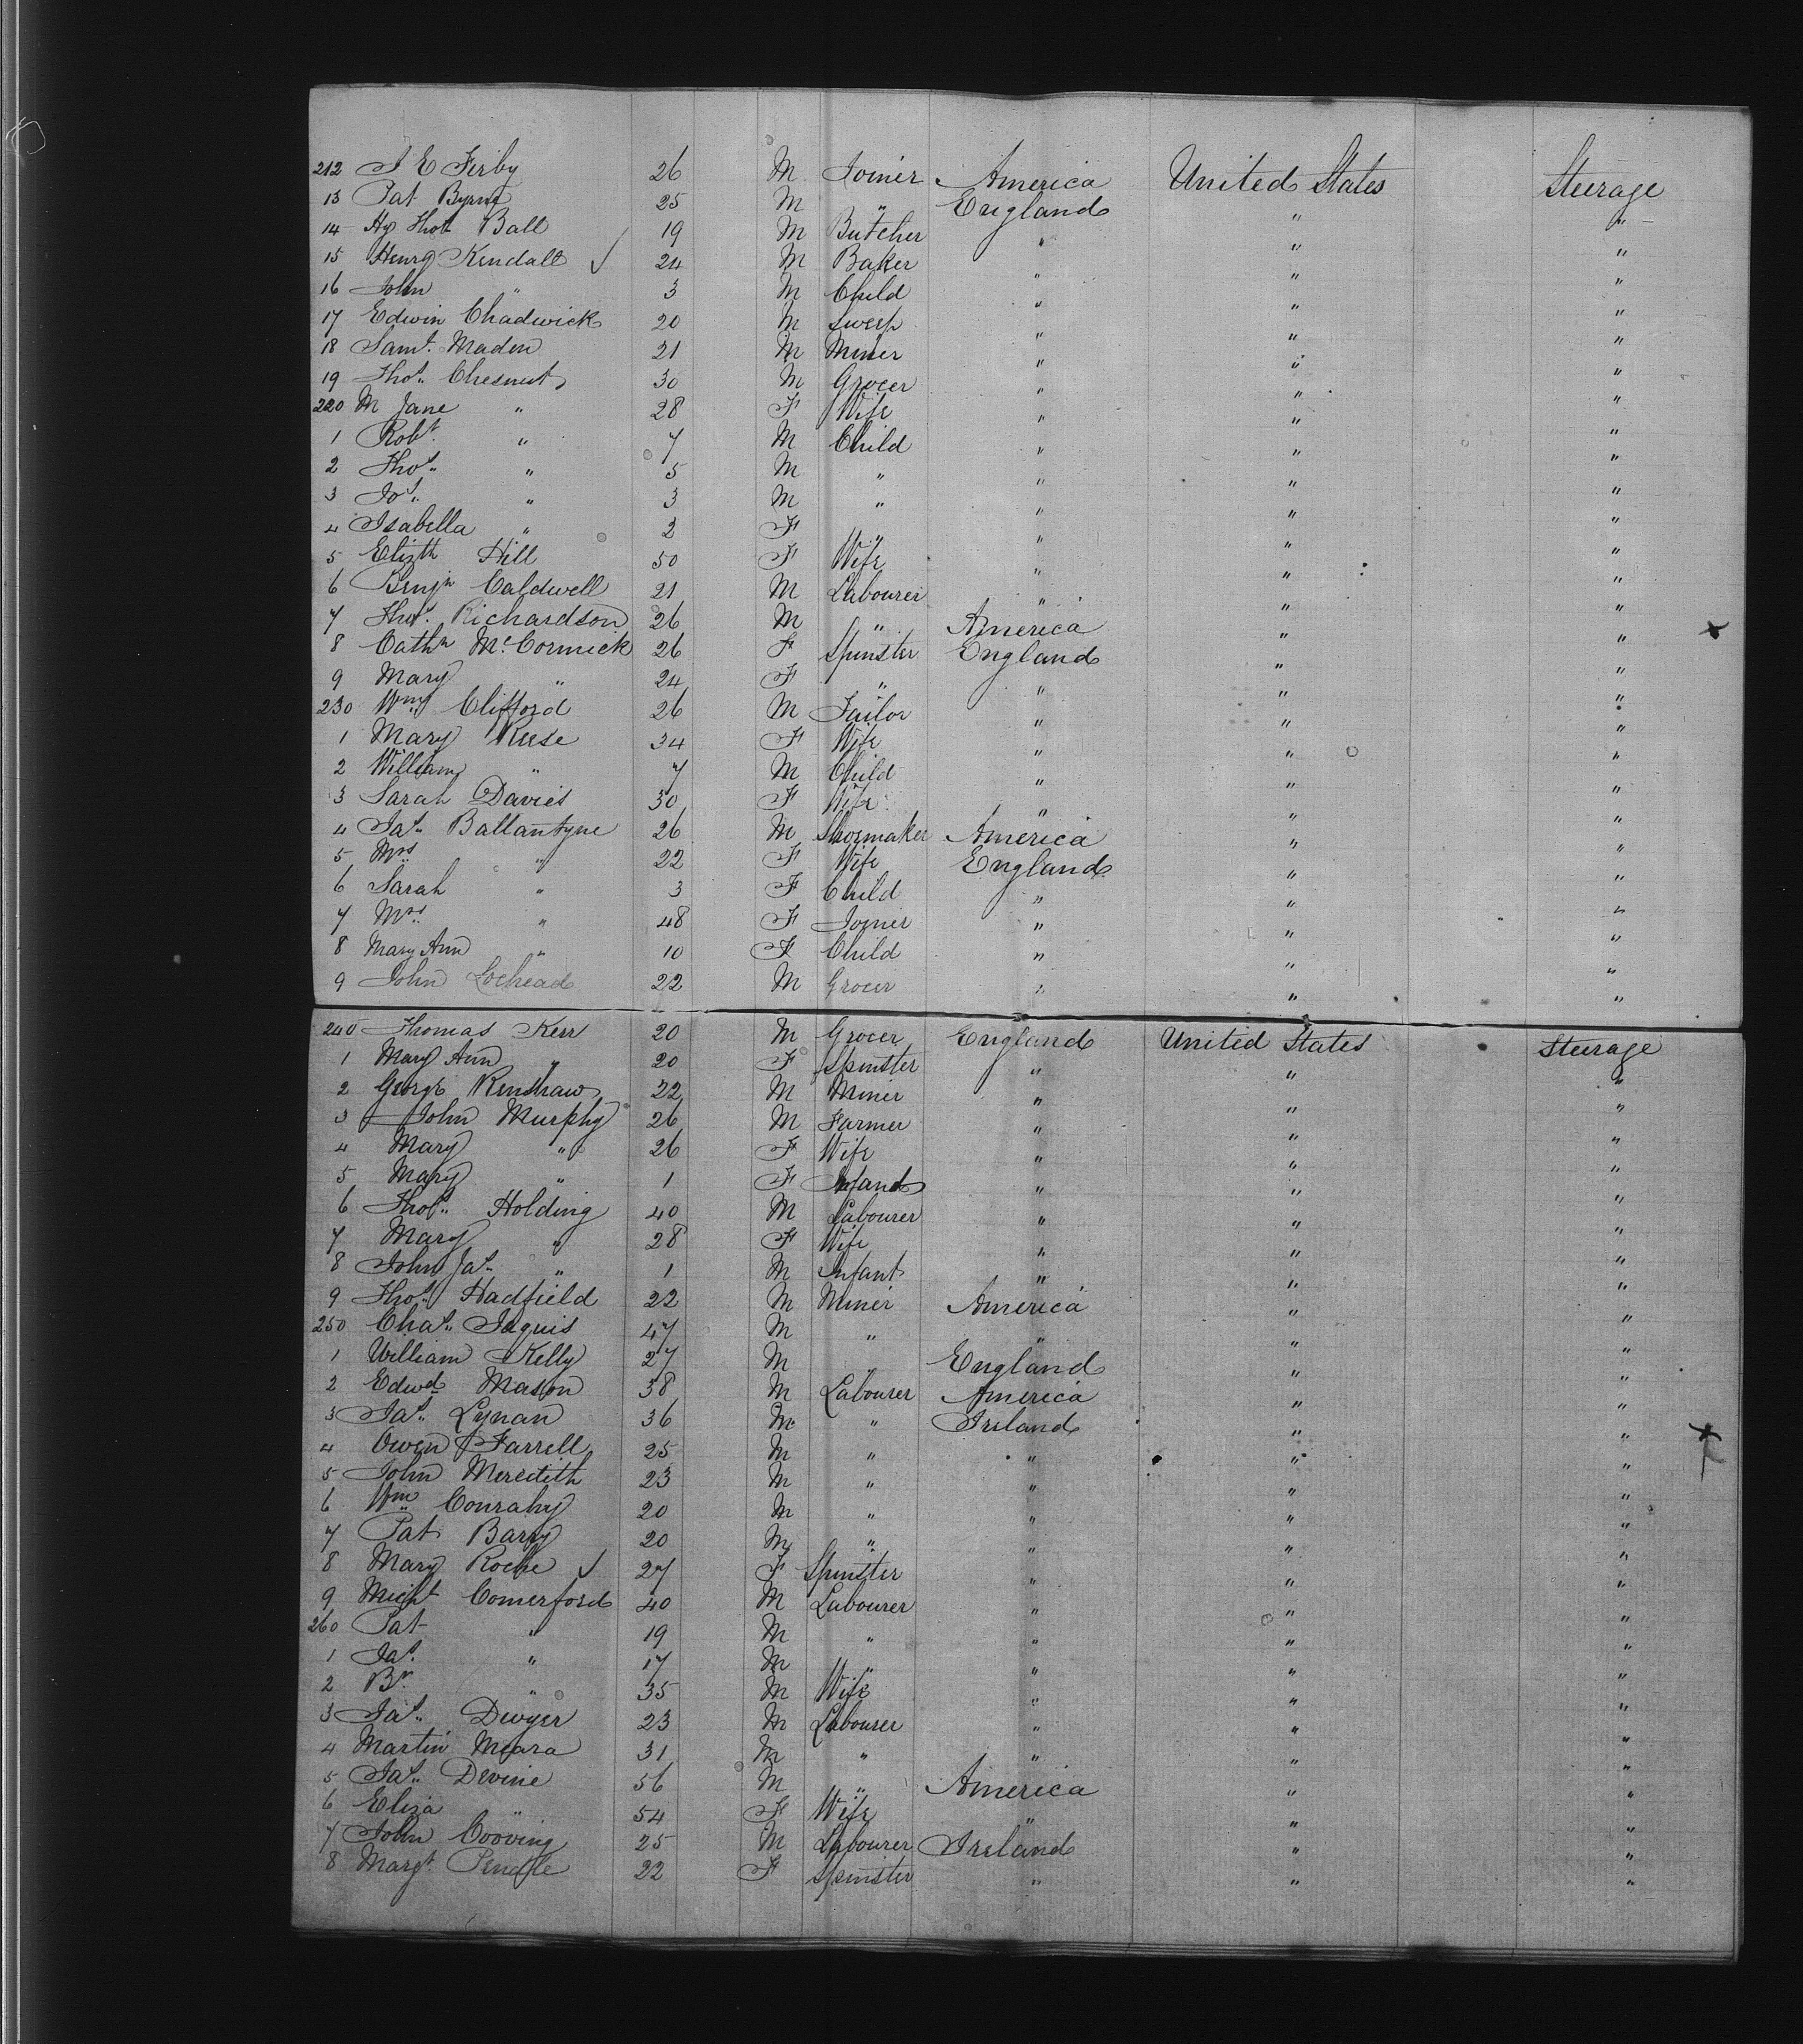 212 J E Firby 26 M Joiner America United States Steerage
13 Pat Byrne 25 M " England " "
14 Hy Thos Ball 19 M Butcher " " "
15 Henry Kendall ✓ 24 M Baker " " "
16 John " 3 M Child " " "
17 Edwin Chadwick 20 M Sweep " " "
18 Saml. Maden 21 M Miner " " "
19 Thos. Chesnut 30 M Grocer " " "
220 M Jane " 28 F Wife " " "
1 Robt. " 7 M Child " " "
2 Thos. " 5 M " " " "
3 Jos. " 3 M " " " "
4 Isabella " 2 F " " " "
5 Elizth Hill 50 F Wife " " "
6 Benjn Caldwell 21 M Labourer " " "
7 Thos. Richardson 26 M " America " " x
8 Cathn McCormick 26 F Spinster England " "
9 Mary " 24 F " " " "
230 Wm Clifford 26 M Tailor " " "
1 Mary Reese 34 F Wife " " "
2 William " 7 M Child " " "
3 Sarah Davies 30 F Wife " " "
4 Jas. Ballantyne 26 M Shoemaker America " "
5 Mrs " 22 F Wife England " "
6 Sarah " 3 F Child " " "
7 Mrs. " 48 F Joiner " " "
8 Mary Ann " 10 F Child " " "
9 John Lochead 22 M Grocer " " "
240 Thomas Kerr 20 M Grocer England United States Steerage
1 Mary Ann " 20 F Spinster " " "
2 George Renshaw 22 M Miner " " "
3 John Murphy 26 M Farmer " " "
4 Mary " 26 F Wife " " "
5 Mary " 1 F Infant " " "
6 Thos. Holding 40 M Labourer " " "
7 Mary " 28 F Wife " " "
8 John Jas. " 1 M Infant " " "
9 Thos. Hadfield 22 M Miner America " "
250 Chas. Jaquis 47 M " " " "
1 William Kelly 27 M " England " "
2 Edwd Mason 38 M Labourer America " "
3 Jas. Lynan 36 M " Ireland " " x
4 Owen Farrell 25 M " " " "
5 John Meredith 23 M " " " "
6 Wm Conrahy 20 M " " " "
7 Pat Barry 20 M " " " "
8 Mary Roche ✓ 27 F Spinster " " "
9 Michl Comerford 40 M Labourer " " "
260 Pat " 19 M " " " "
1 Jas. " 17 M " " " "
2 Br " 35 M Wife " " "
3 Jas. Dwyer 23 M Labourer " " "
4 Martin Meara 31 M " " " "
5 Jas. Devine 56 M " America " "
6 Eliza " 54 F Wife " " "
7 John Cooving 25 M Labourer Ireland " "
8 Margt. Pendle 22 F Spinster " " "